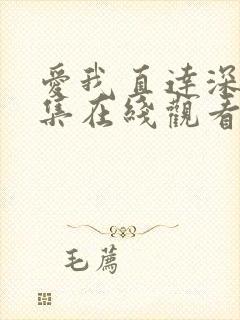 愛我直達深
集在綫觀看
毛薦